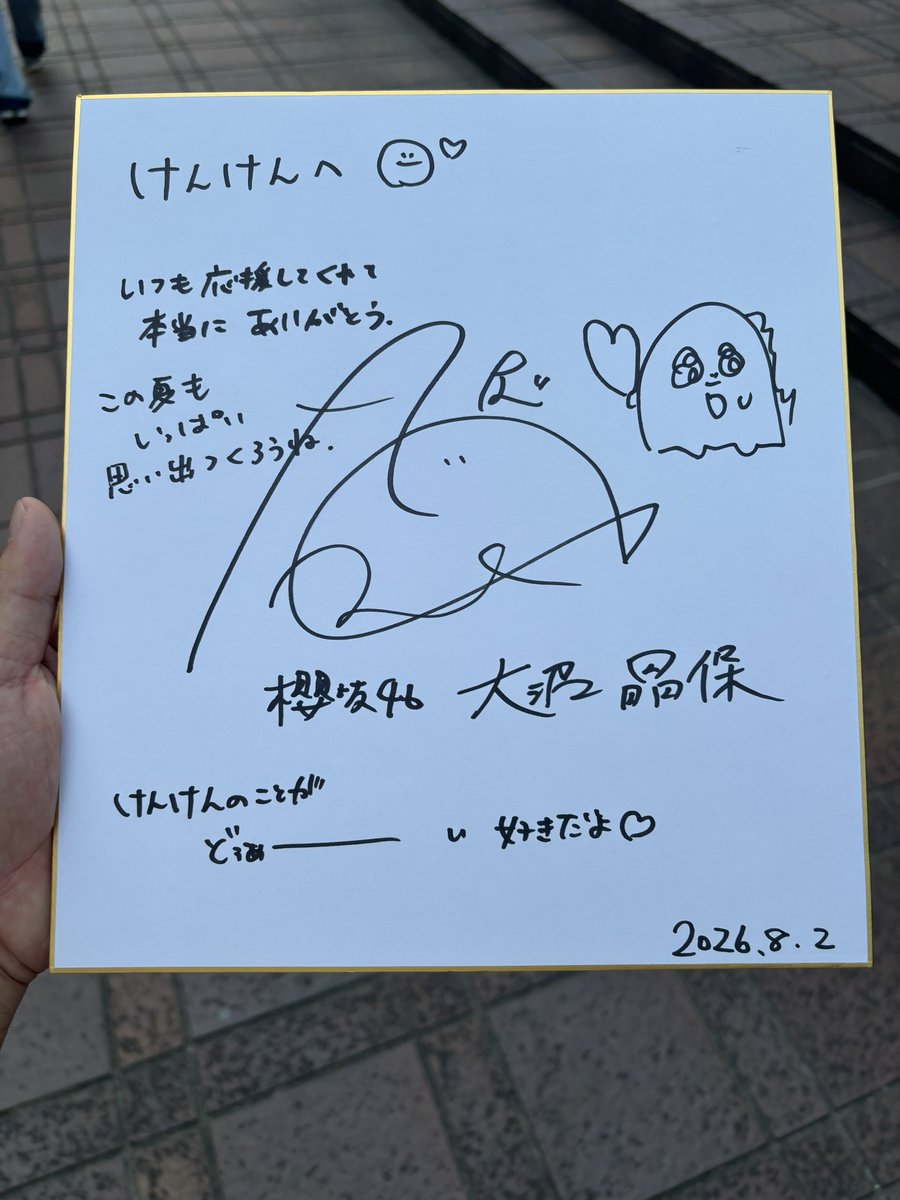 けんけんへ
いつも応援してくれて
本当にありがとう.
この夏も
いっぱい
思い出つくろうね.
櫻坂46 大沼 晶保
けんけんのことが
好きだよ♡
2026.8.2